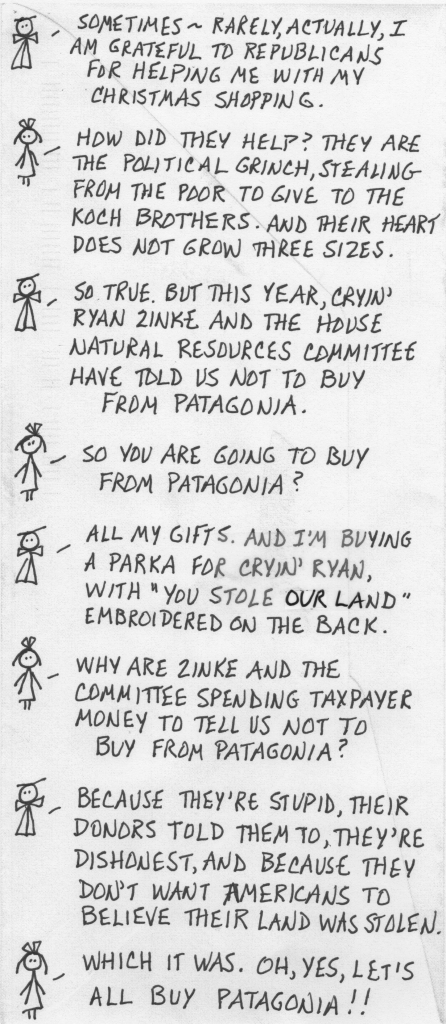 SOMETIMES ~ RARELY, ACTUALLY, I
AM GRATEFUL TO REPUBLICANS
FOR HELPING ME WITH MY
CHRISTMAS SHOPPING.
HOW DID THEY HELP? THEY ARE
THE POLITICAL GRINCH, STEALING
FROM THE POOR TO GIVE TO THE
KOCH BROTHERS. AND THEIR HEART
DOES NOT GROW THREE SIZES.
SO TRUE. BUT THIS YEAR, CRYIN'
RYAN ZINKE AND THE HOUSE
NATURAL RESOURCES COMMITTEE
HAVE TOLD US NOT TO BUY
FROM PATAGONIA.
SO YOU ARE GOING TO BUY
FROM PATAGONIA?
ALL MY GIFTS. AND I'M BUYING
A PARKA FOR CRYIN' RYAN,
WITH "YOU STOLE OUR LAND"
EMBROIDERED ON THE BACK.
WHY ARE ZINKE AND THE
COMMITTEE SPENDING TAXPAYER
MONEY TO TELL US NOT TO
BUY FROM PATAGONIA?
BECAUSE THEY'RE STUPID, THEIR
DONORS TOLD THEM TO, THEY'RE
DISHONEST, AND BECAUSE THEY
DON'T WANT AMERICANS TO
BELIEVE THEIR LAND WAS STOLEN.
WHICH IT WAS. OH, YES, LET'S
ALL BUY PATAGONIA!!